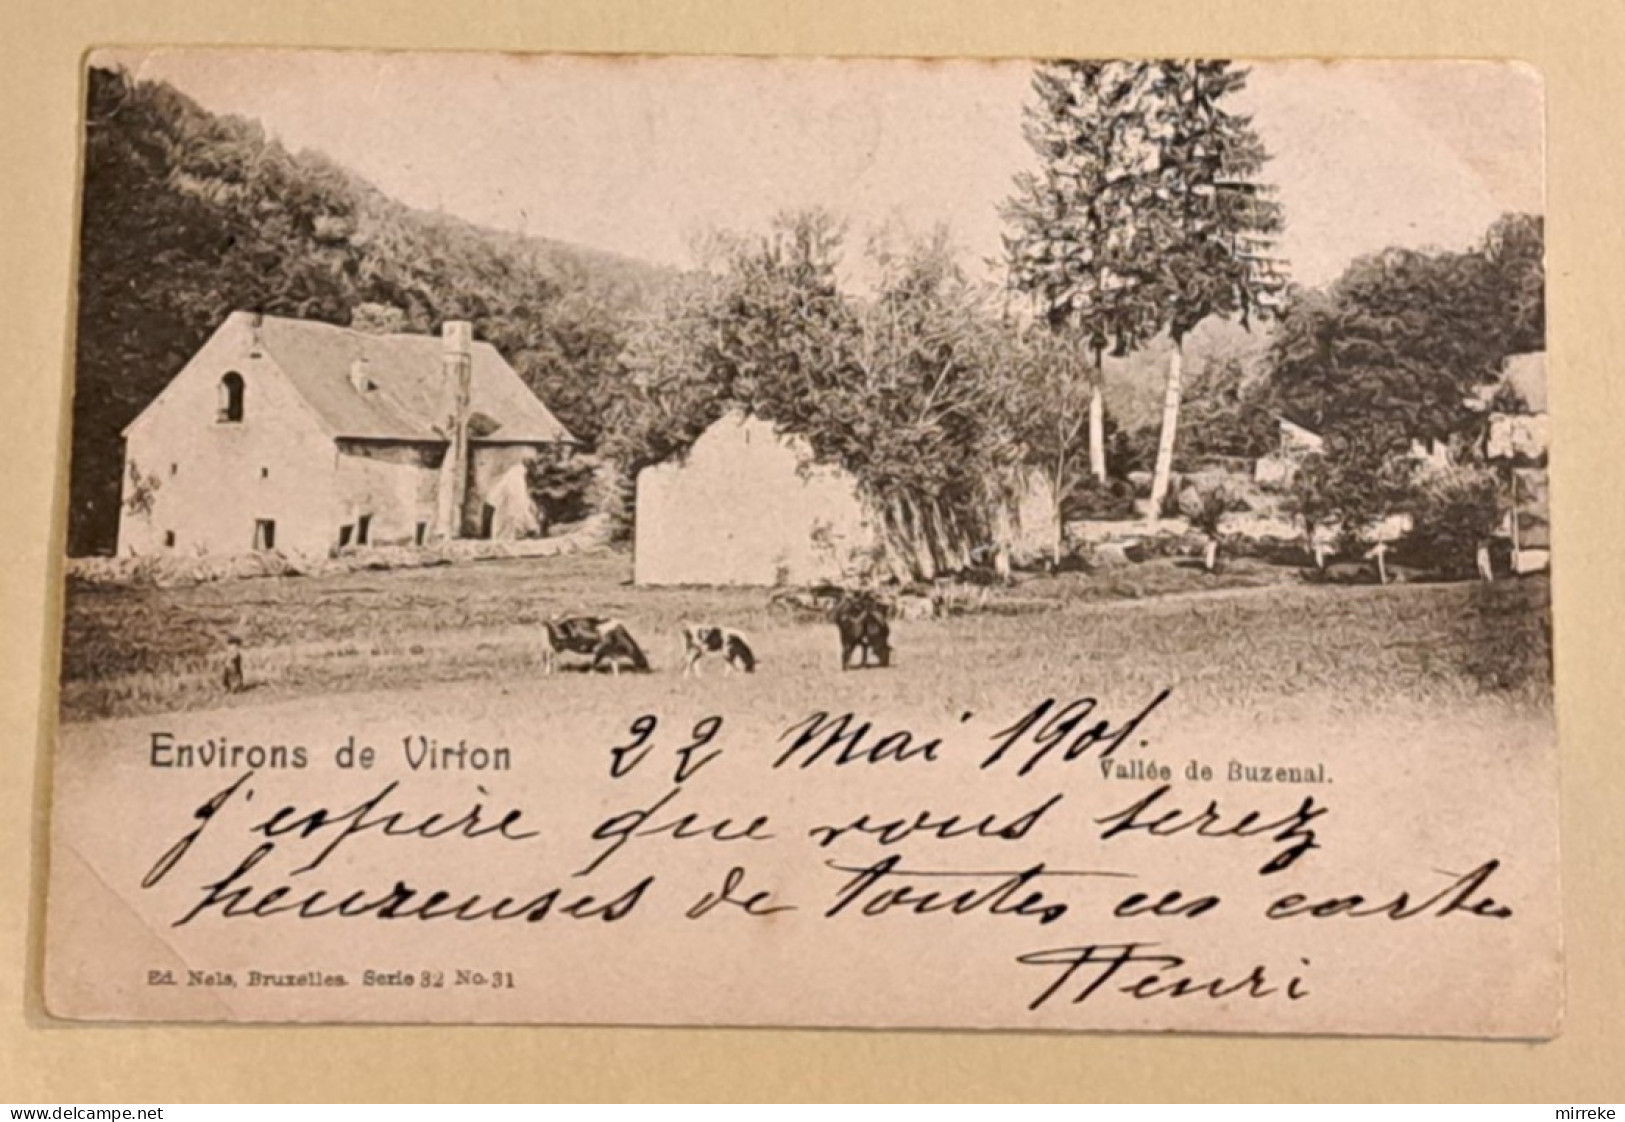 Environs de Virton
22 Mai 1901.
Vallée de Buzenal.
J'espère que vous serez
heureuses de toutes ces cartes
Henri
Ed. Nels, Bruxelles. Serie 32 No. 31
www.delcampe.net
mirreke